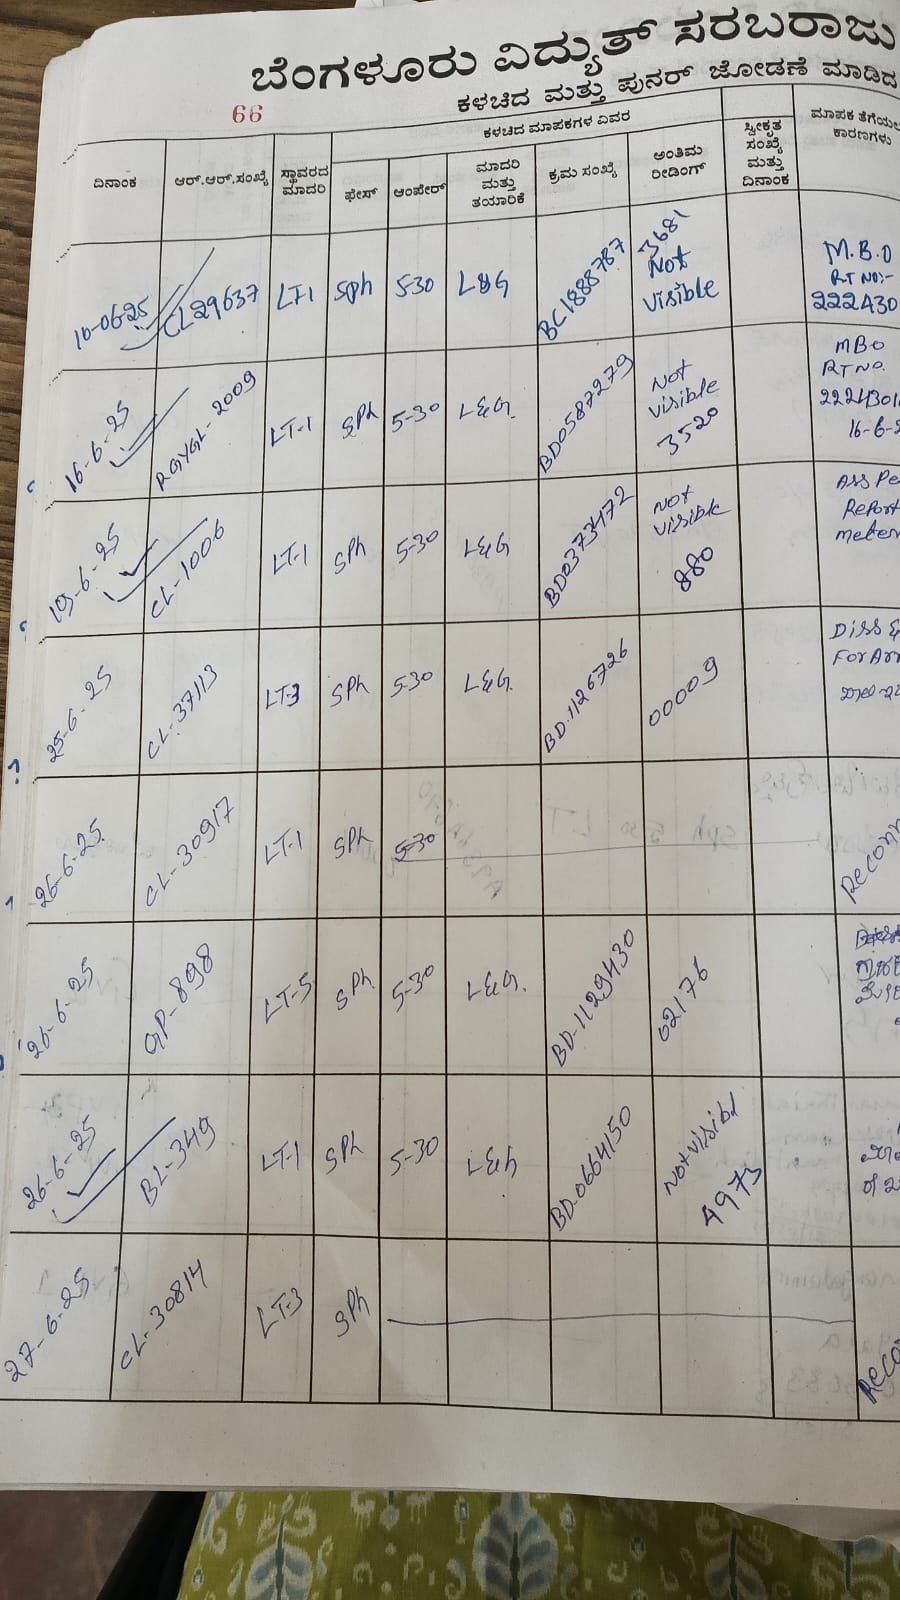 ಬೆಂಗಳೂರು ವಿದ್ಯುತ್ ಸರಬರಾಜು
66
ಕಳಚಿದ ಮತ್ತು ಪುನರ್ ಜೋಡಣೆ ಮಾಡಿದ
ಕಳಚಿದ ಮಾಪಕಗಳ ವಿವರ
ದಿನಾಂಕ ಆರ್.ಆರ್.ಸಂಖ್ಯೆ ಸ್ಥಾವರದ ಮಾದರಿ ಫೇಸ್ ಆಂಪೇರ್ ಮಾದರಿ ಮತ್ತು ತಯಾರಿಕೆ ಕ್ರಮ ಸಂಖ್ಯೆ ಅಂತಿಮ ರೀಡಿಂಗ್ ಸ್ವೀಕೃತ ಸಂಖ್ಯೆ ಮತ್ತು ದಿನಾಂಕ ಮಾಪಕ ತೆಗೆಯಲ ಕಾರಣಗಳು
10-06-25 CL29637 LT1 Sph 5-30 L&G BC1888787 3681 Not visible M.B.O RT NO:- 222430
16-6-25 RGYGL-2009 LT-1 SPh 5-30 L&G. BD0587279 Not visible 3520 MBO RTNO. 16-6-2
19-6-25 CL-1006 LT-1 SPh 5-30 L&G BD0373472 Not visible 880 Report meter
25-6-25 CL-37113 LT-3 SPh 5-30 L&G. BD-1126726 00009
26-6-25 CL-30917 LT-1 SPh 5-30 Reconn
26-6-25 GP-898 LT-5 SPh 5-30 L&G. BD-1129430 02176
26-6-25 BL-349 LT-1 SPh 5-30 L&G BD-0664150 Not visibl 4973
27-6-25 CL-30814 LT-3 SPh Reco